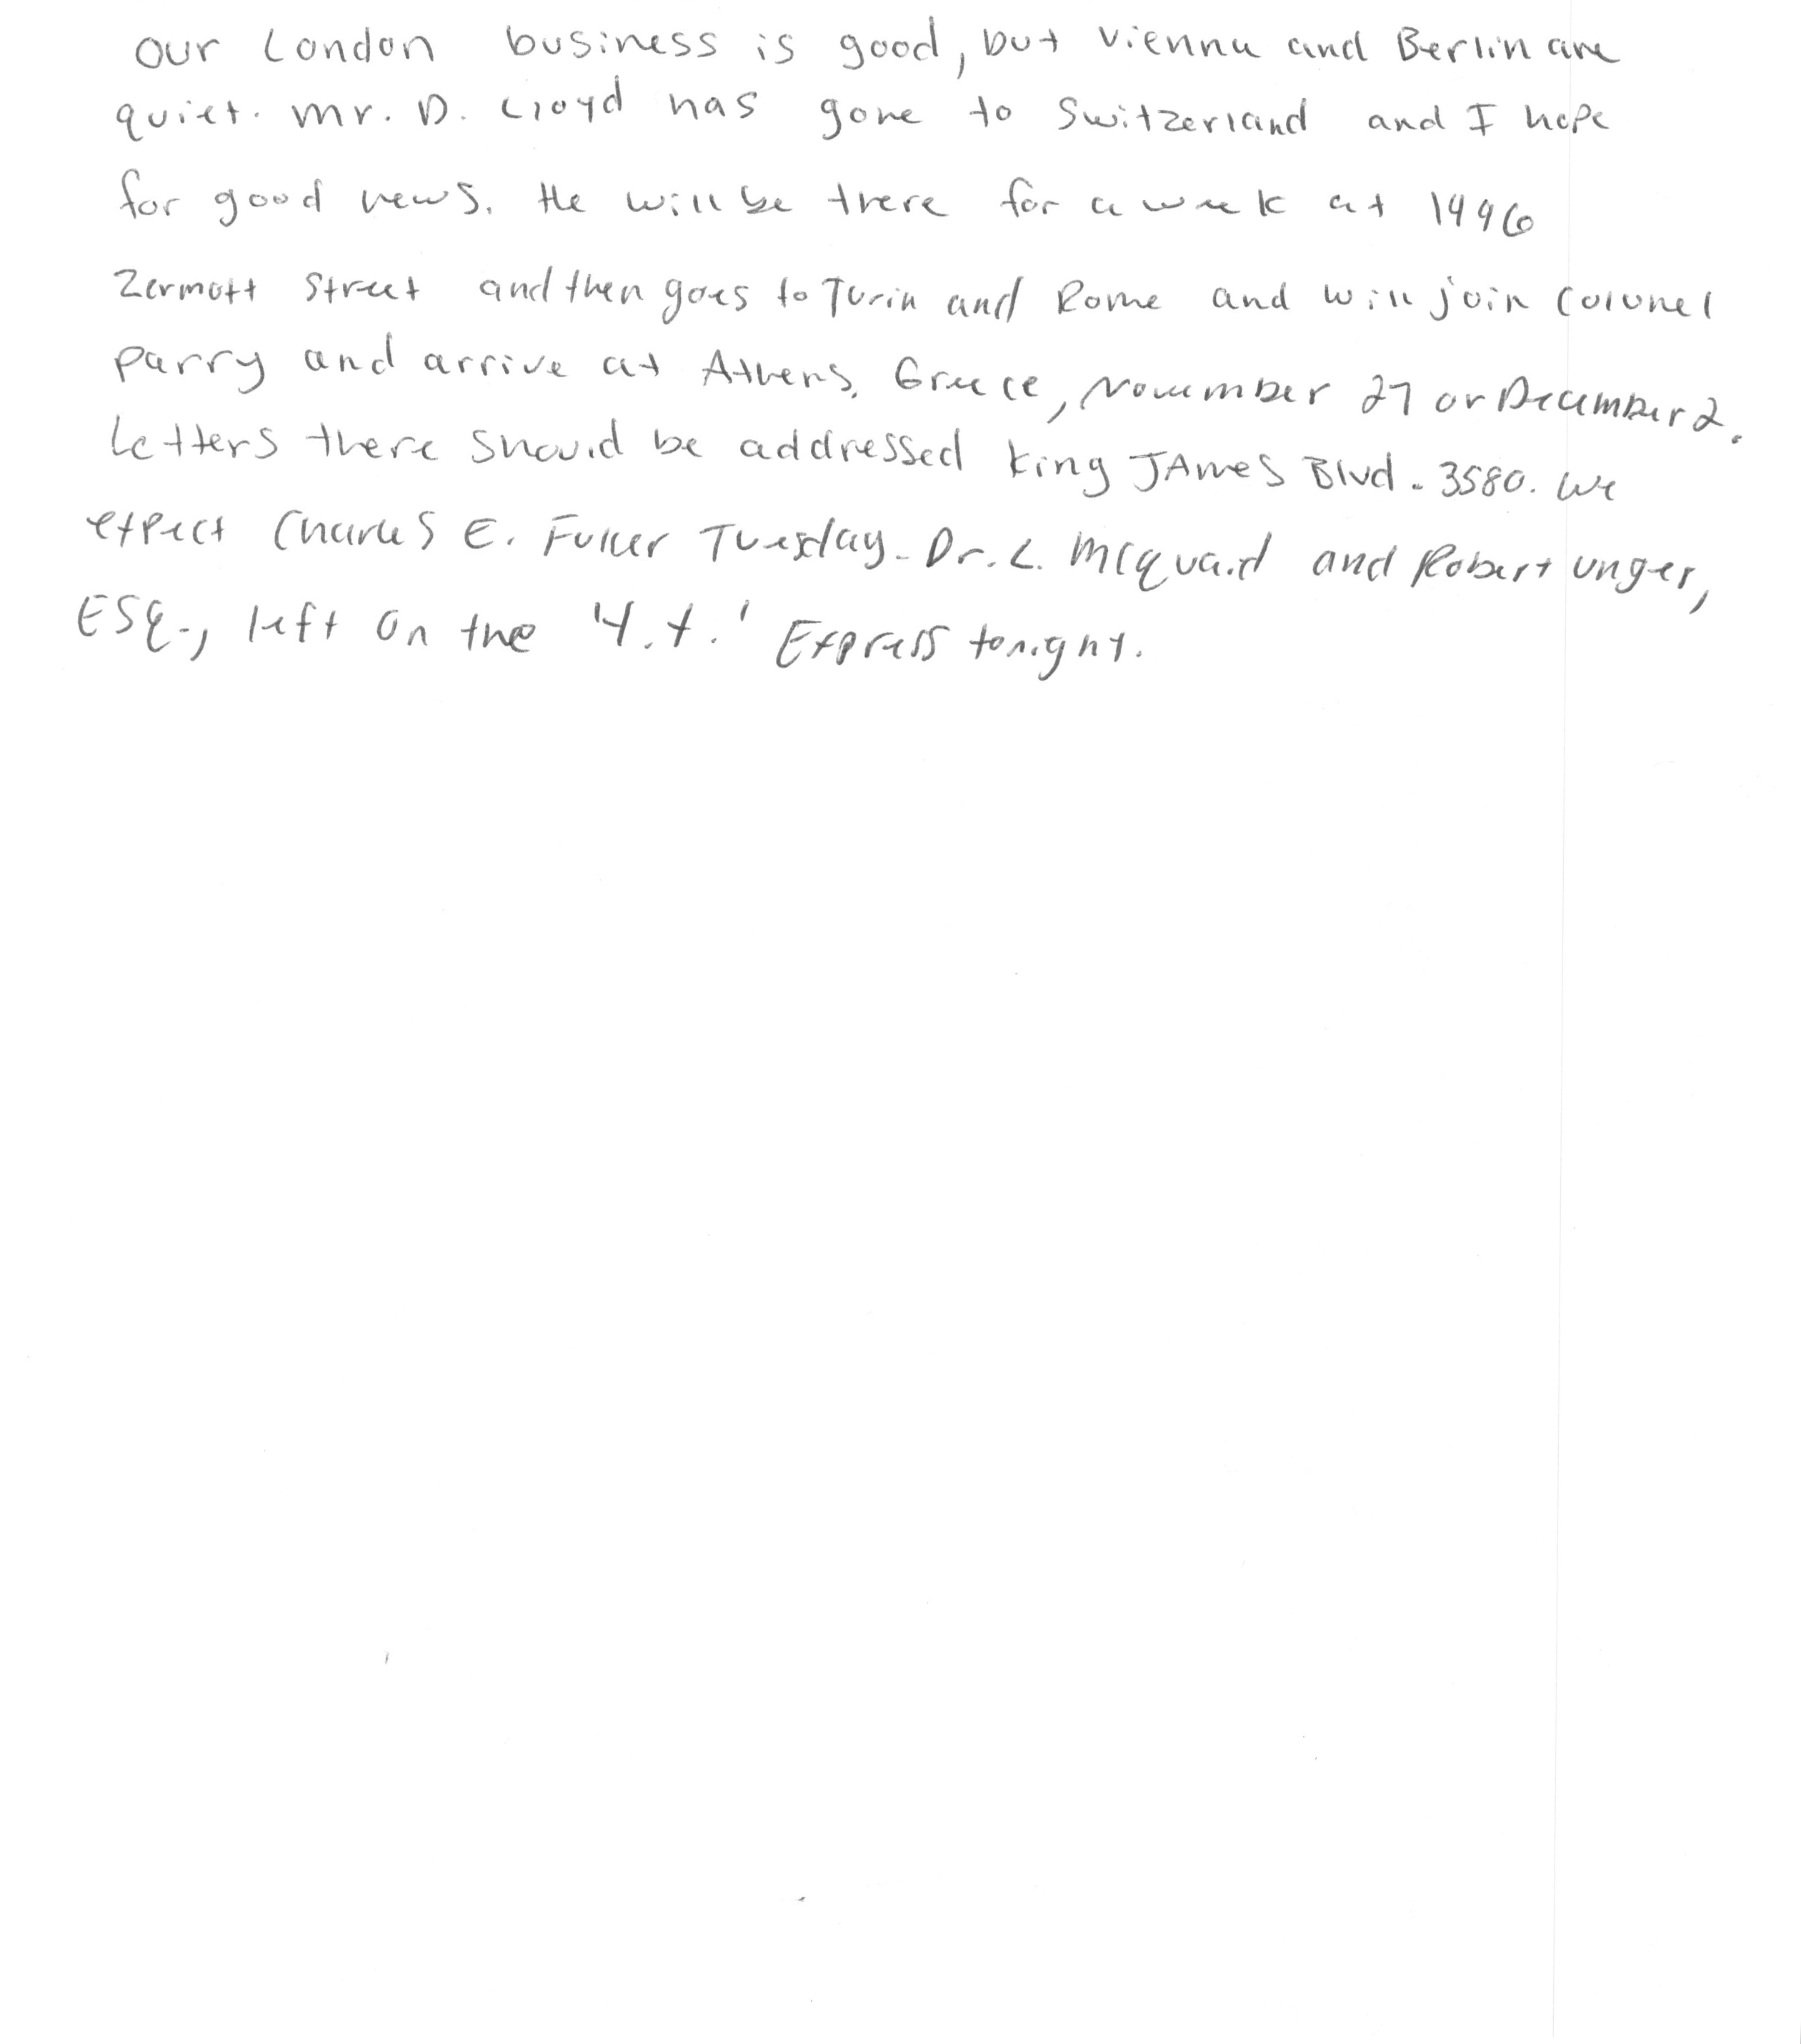 Our London business is good, but Vienna and Berlin are
quiet. Mr. D. Lloyd has gone to Switzerland and I hope
for good news. He will be there for a week at 1496
Zermott Street and then goes to Turin and Rome and will join Colonel
Parry and arrive at Athens, Greece, November 27 or December 2.
Letters there should be addressed King James Blvd. 3580. We
expect Charles E. Fuller Tuesday. Dr. L. McQuaid and Robert Unger,
Esq., left on the 'Y.X.' Express tonight.